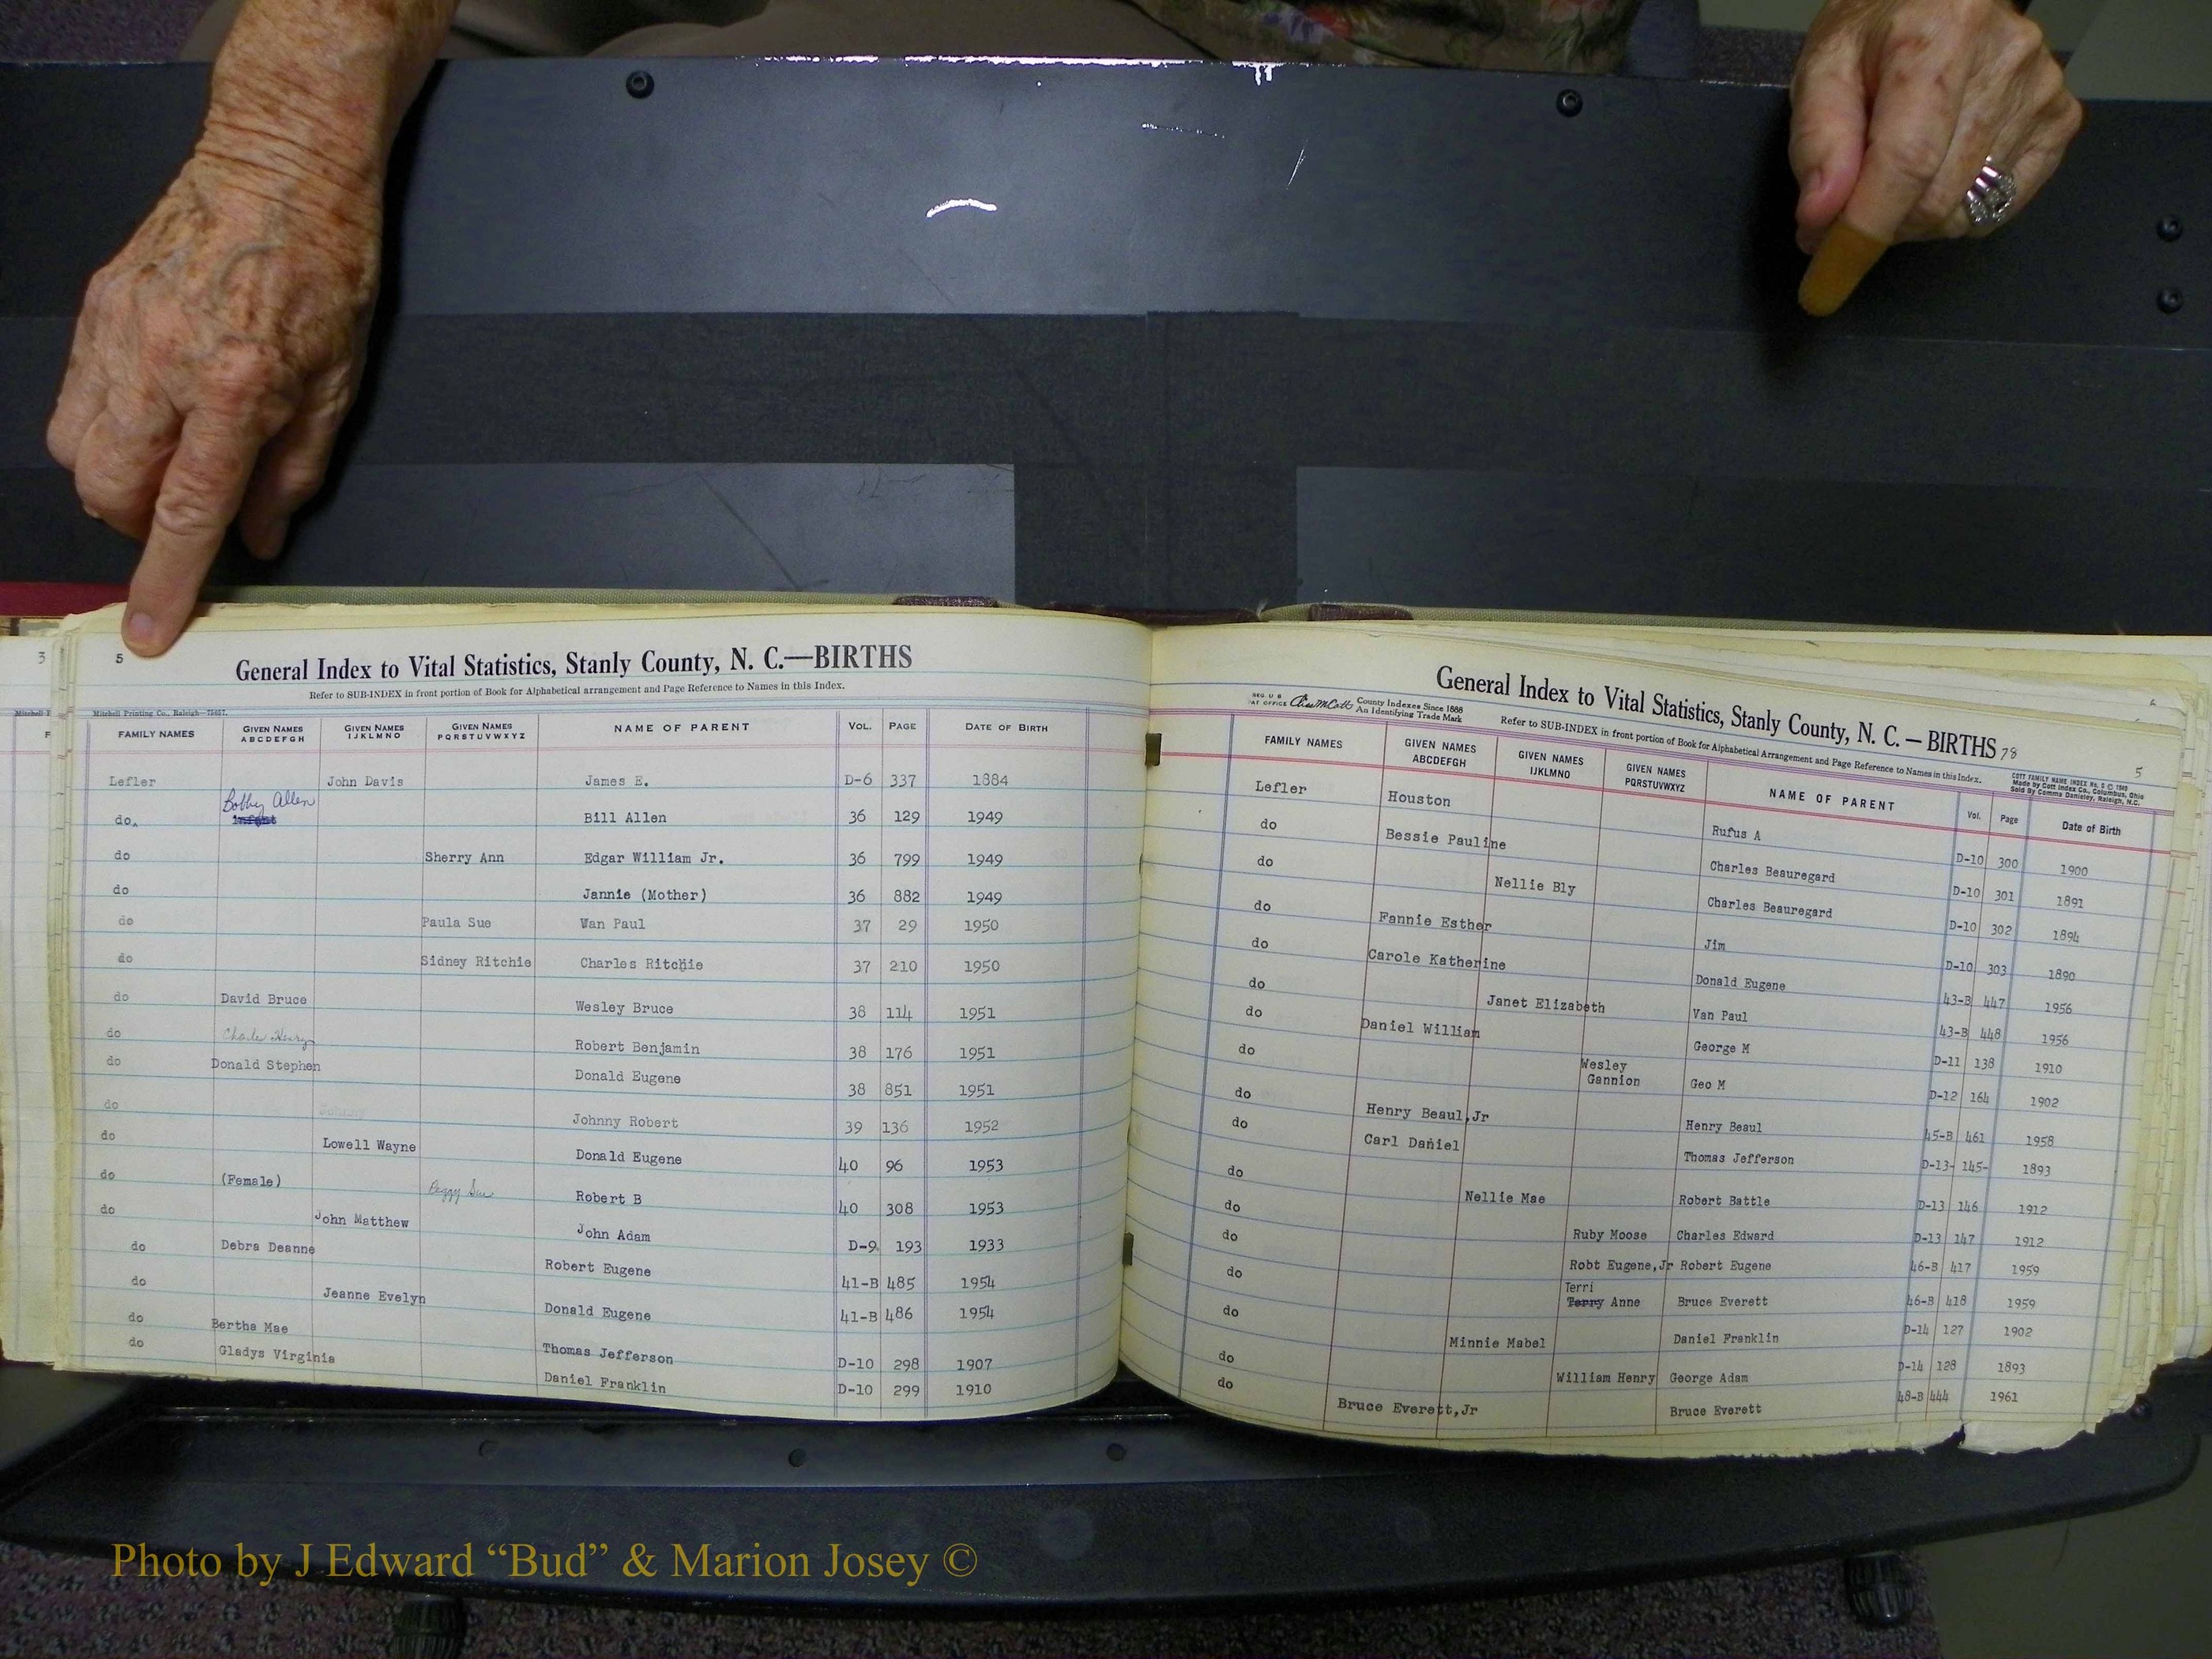 3
5
General Index to Vital Statistics, Stanly County, N. C.—BIRTHS
Refer to SUB-INDEX in front portion of Book for Alphabetical arrangement and Page Reference to Names in this Index.
Mitchell Printing Co., Raleigh—75657.
FAMILY NAMES GIVEN NAMES ABCDEFGH GIVEN NAMES IJKLMNO GIVEN NAMES PQRSTUVWXYZ NAME OF PARENT VOL. PAGE DATE OF BIRTH
Lefler John Davis James E. D-6 337 1884
do. Bobby Allen Infant Bill Allen 36 129 1949
do Sherry Ann Edgar William Jr. 36 799 1949
do Jannie (Mother) 36 882 1949
do Paula Sue Van Paul 37 29 1950
do Sidney Ritchie Charles Ritchie 37 210 1950
do David Bruce Wesley Bruce 38 114 1951
do Charles Henry Robert Benjamin 38 176 1951
do Donald Stephen Donald Eugene 38 851 1951
do Johnny Robert 39 136 1952
do Lowell Wayne Donald Eugene 40 96 1953
do (Female) Peggy Sue Robert B 40 308 1953
do John Matthew John Adam D-9 193 1933
do Debra Deanne Robert Eugene 41-B 485 1954
do Jeanne Evelyn Donald Eugene 41-B 486 1954
do Bertha Mae Thomas Jefferson D-10 298 1907
do Gladys Virginia Daniel Franklin D-10 299 1910
General Index to Vital Statistics, Stanly County, N. C. — BIRTHS 78
County Indexes Since 1888
An Identifying Trade Mark
Refer to SUB-INDEX in front portion of Book for Alphabetical Arrangement and Page Reference to Names in this Index.
5
COTT FAMILY NAME INDEX No. 6 © 1949
Made by Cott Index Co., Columbus, Ohio
Sold By Comms Danieley, Raleigh, N.C.
FAMILY NAMES GIVEN NAMES ABCDEFGH GIVEN NAMES IJKLMNO GIVEN NAMES PQRSTUVWXYZ NAME OF PARENT Vol. Page Date of Birth
Lefler Houston Rufus A D-10 300 1900
do Bessie Pauline Charles Beauregard D-10 301 1891
do Nellie Bly Charles Beauregard D-10 302 1894
do Fannie Esther Jim D-10 303 1890
do Carole Katherine Donald Eugene 43-B 447 1956
do Janet Elizabeth Van Paul 43-B 448 1956
do Daniel William George M D-11 138 1910
do Wesley Gannion Geo M D-12 164 1902
do Henry Beaul,Jr Henry Beaul 45-B 461 1958
do Carl Daniel Thomas Jefferson D-13- 145- 1893
do Nellie Mae Robert Battle D-13 146 1912
do Ruby Moose Charles Edward D-13 147 1912
do Robt Eugene,Jr Robert Eugene 46-B 417 1959
do Terri Terry Anne Bruce Everett 46-B 418 1959
do Minnie Mabel Daniel Franklin D-14 127 1902
do William Henry George Adam D-14 128 1893
do Bruce Everett,Jr Bruce Everett 48-B 444 1961
Photo by J Edward “Bud” & Marion Josey ©